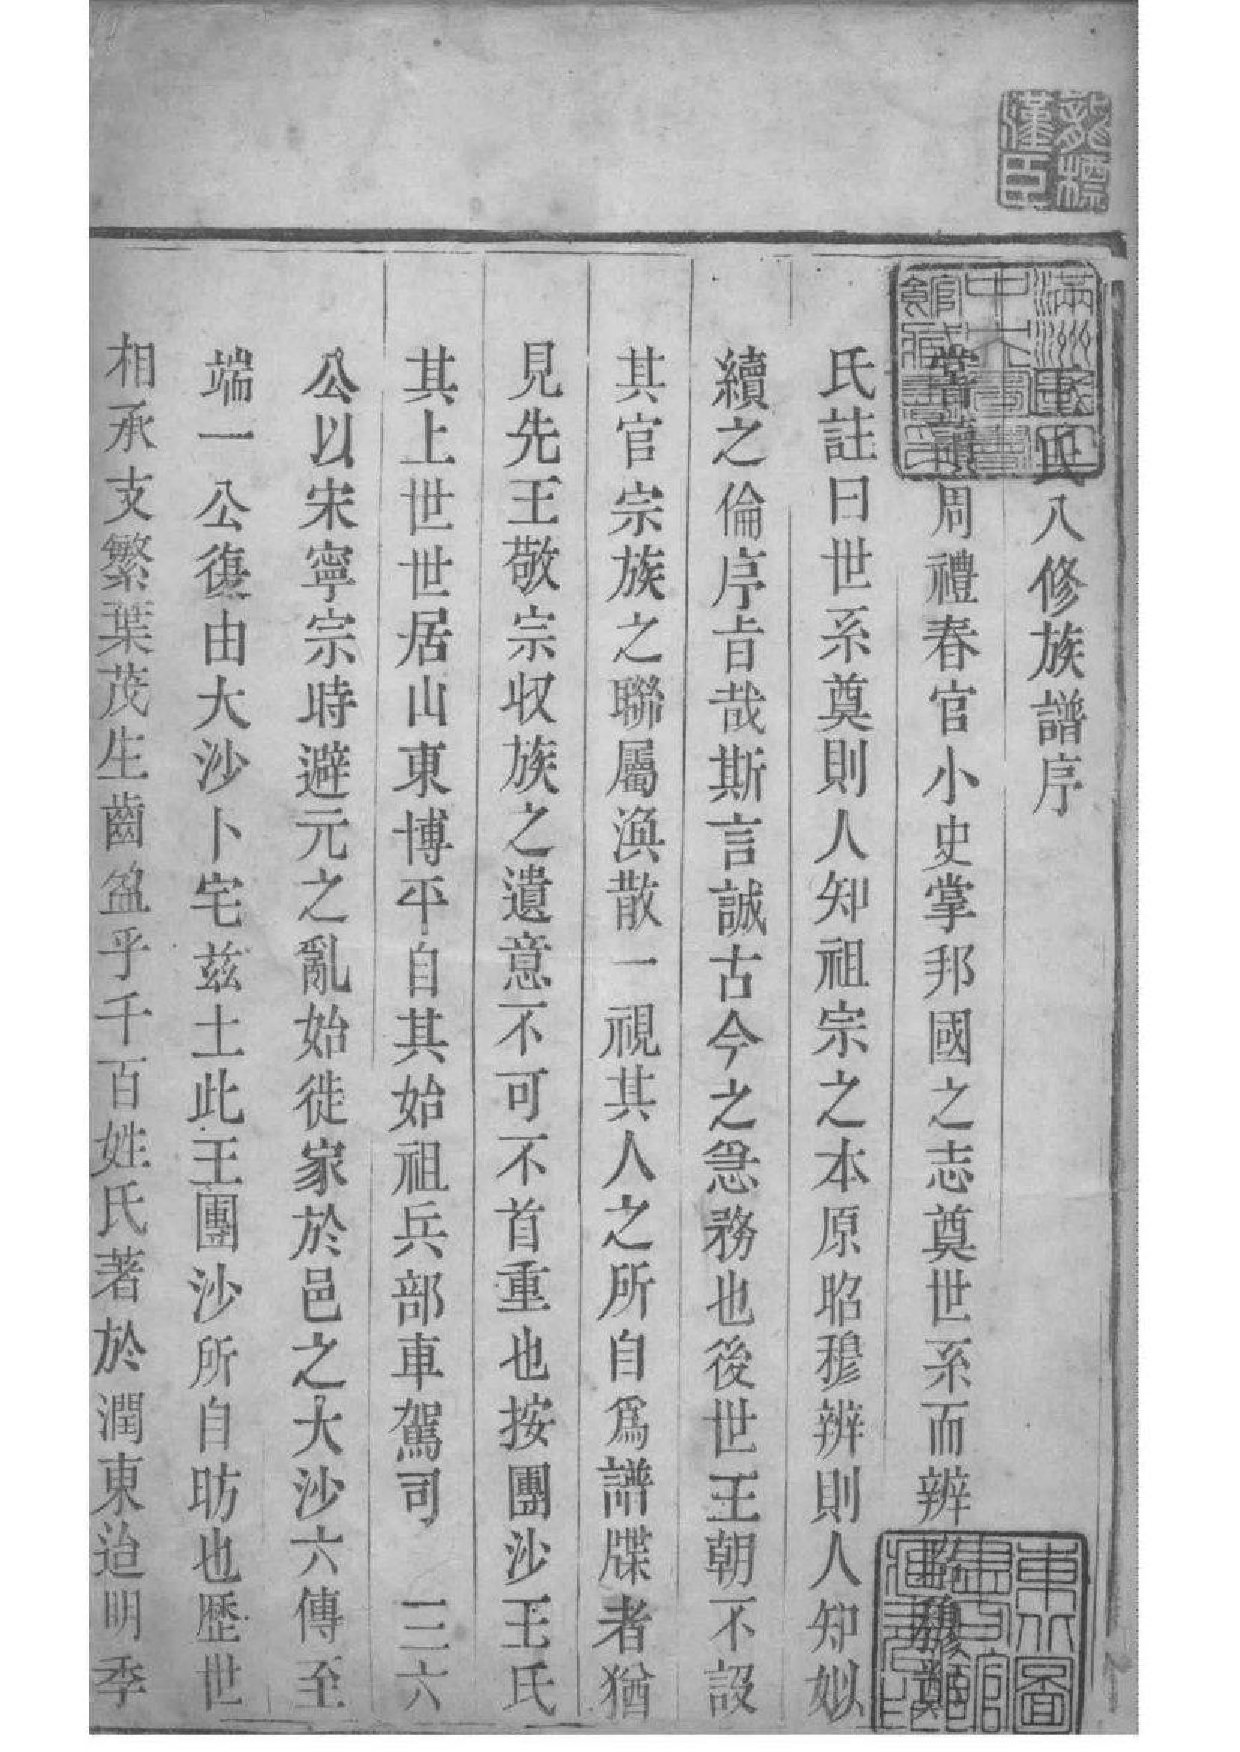 王氏八修族譜序
嘗讀周禮春官小史掌邦國之志奠世系而辨昭穆鄭
氏註曰世系奠則人知祖宗之本原昭穆辨則人知姒
續之倫序旨哉斯言誠古今之急務也後世王朝不設
其官宗族之聯屬渙散一視其人之所自爲譜牒者猶
見先王敬宗収族之遺意不可不首重也按團沙王氏
其上世世居山東博平自其始祖兵部車駕司 三六
公以宋寧宗時避元之亂始徙家於邑之大沙六傳至
端一公復由大沙卜宅兹土此王團沙所自昉也歷世
相承支繁葉茂生齒盈乎千百姓氏著於潤東迨明季